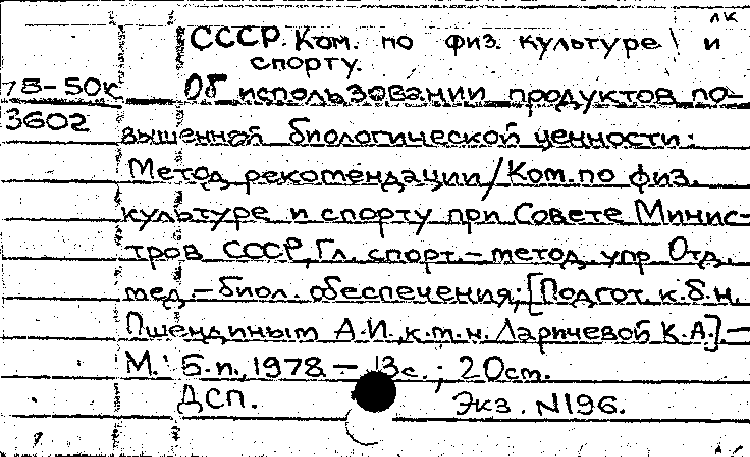 лк
СССР. Ком. по физ. культуре и
спорту.
78-50к Об использовании продуктов по-
3602 вышенной биологической ценности:
Метод. рекомендации/Ком. по физ.
культуре и спорту при Совете Минис-
тров СССР, Гл. спорт.-метод. упр. Отд.
мед.-биол. обеспечения; [Подгот. к.б.н.
Пшендиным А.И., к.т.н. Ларичевой К.А.].-
М.: Б.и., 1978. - 13с.; 20см.
ДСП. Экз. N196.